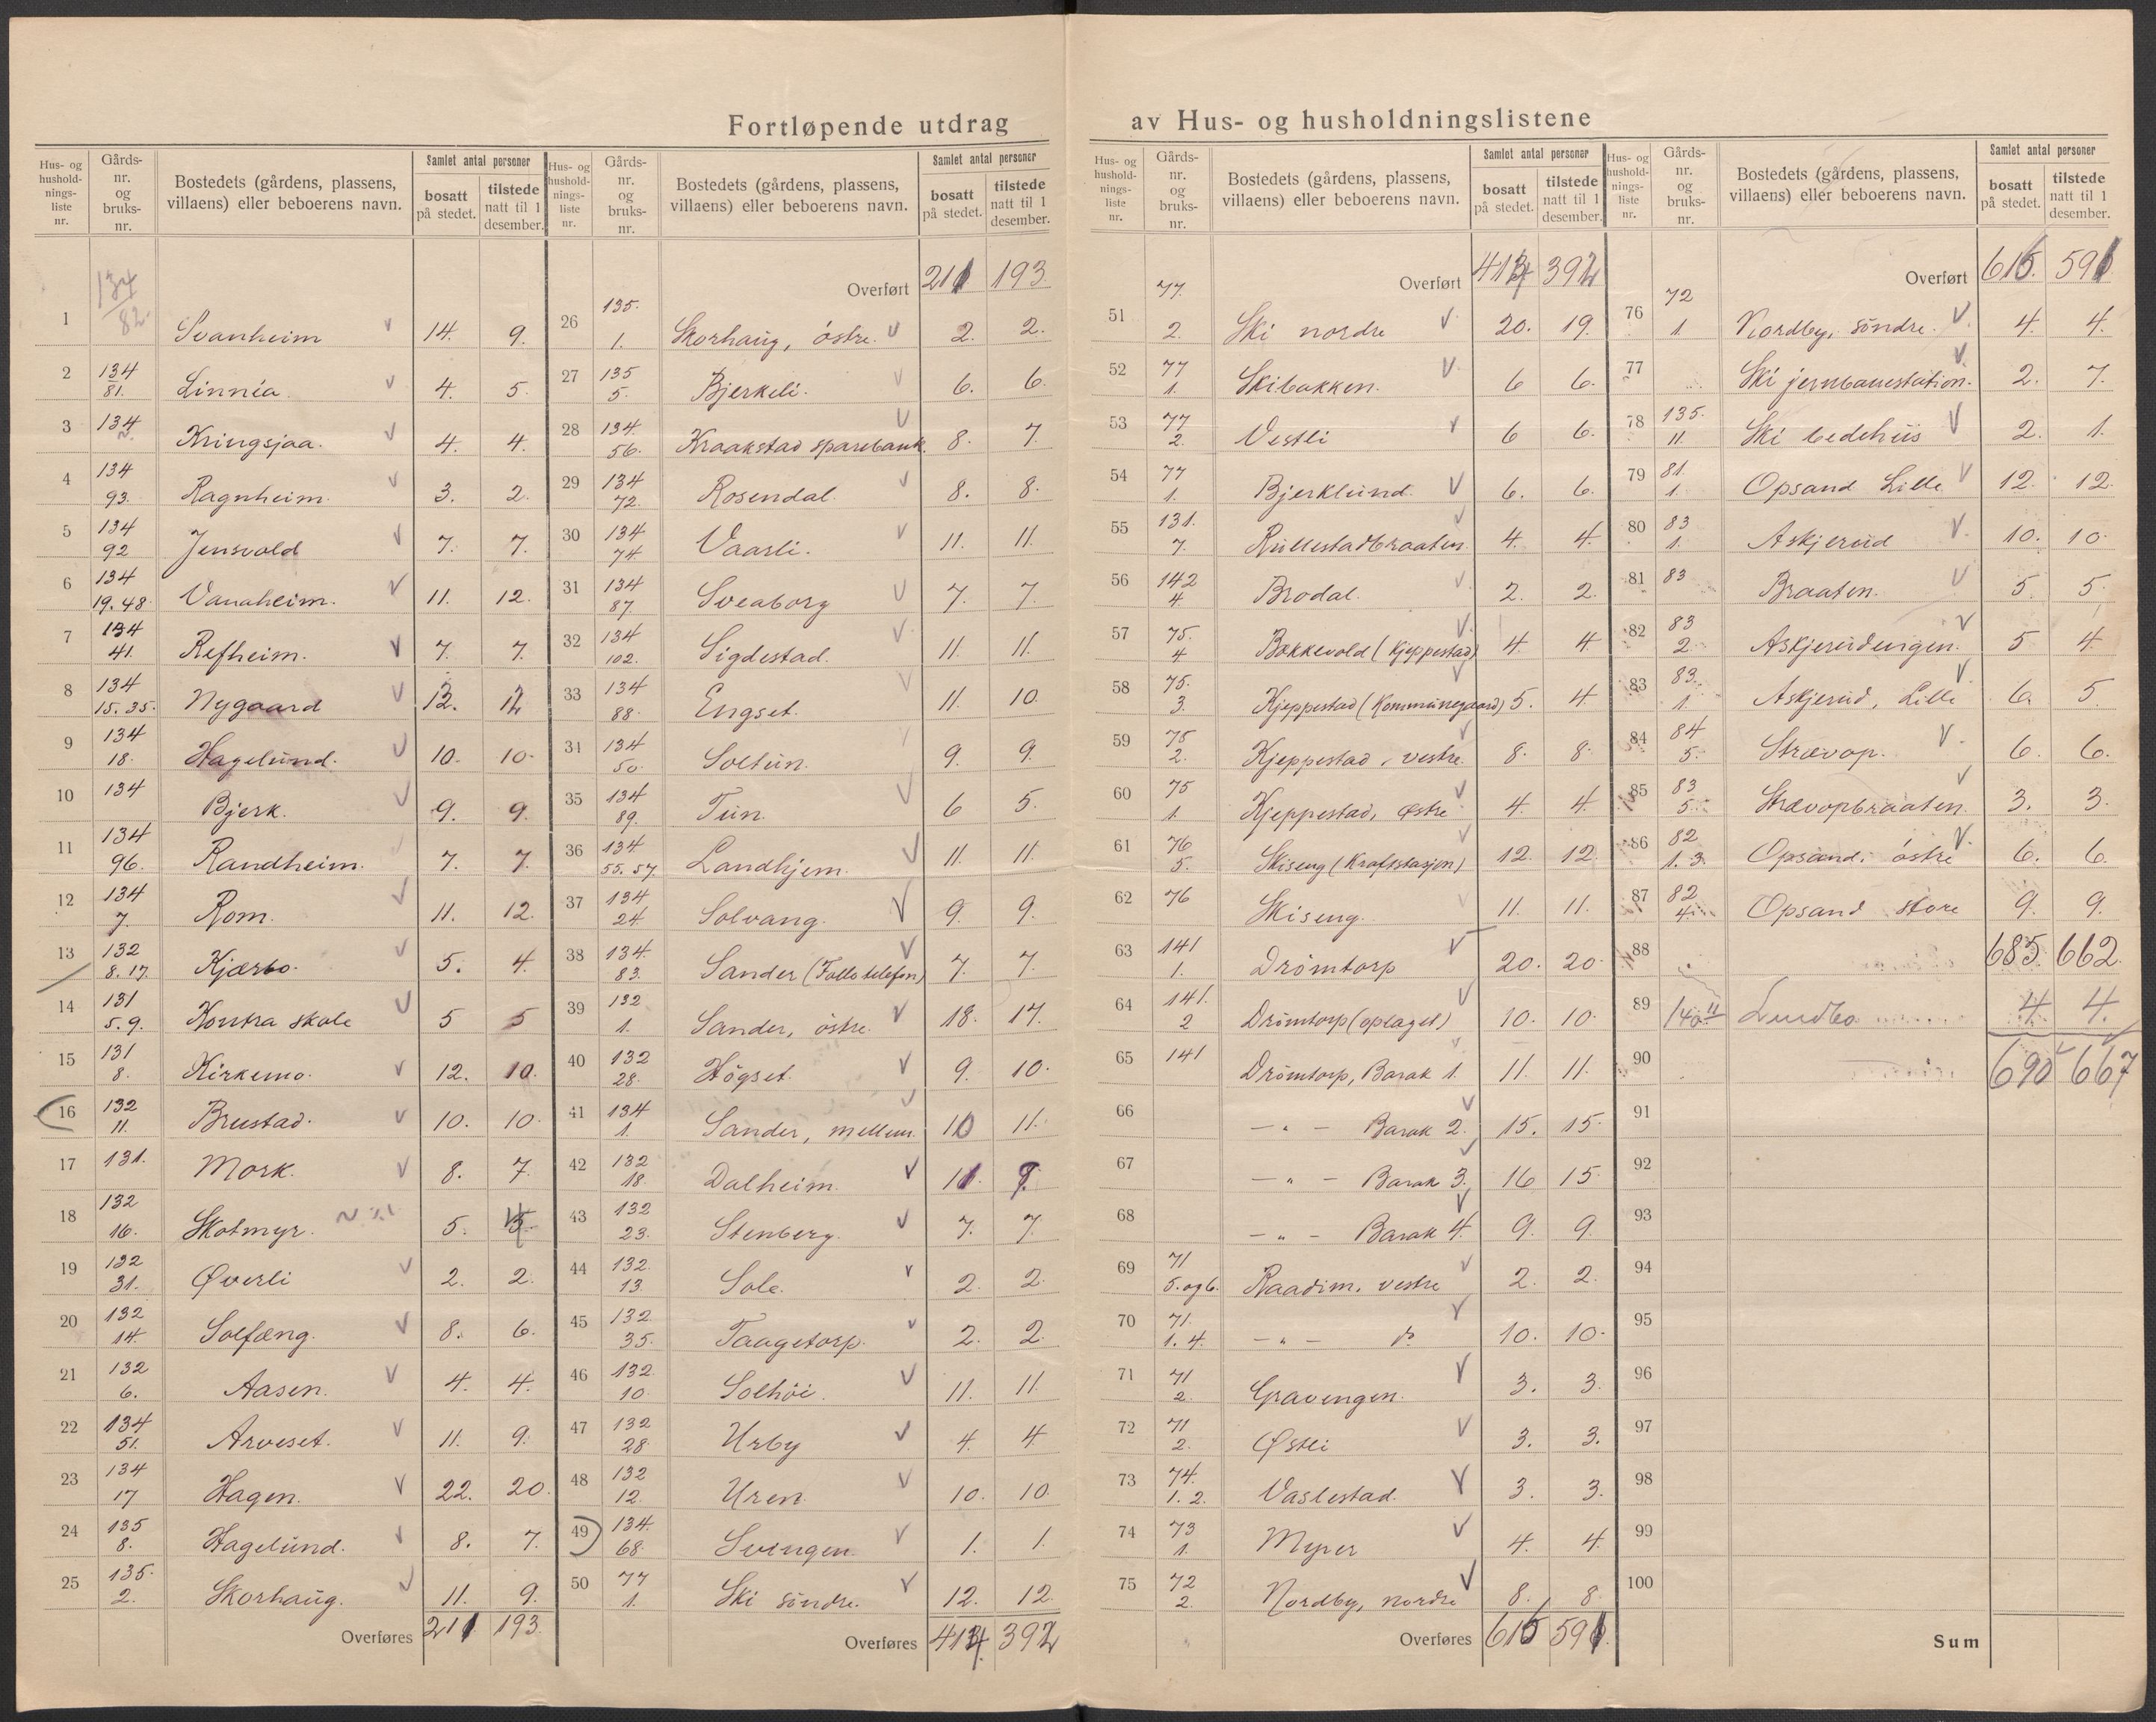 Fortløpende utdrag av Hus- og husholdningslistene
Hus- og hushold-nings-liste nr. Gårds-nr. og bruks-nr. Bostedets (gårdens, plassens, villaens) eller beboerens navn. Samlet antal personer bosatt på stedet. tilstede natt til 1 desember.
1 134/82. Svanheim 14. 9.
2 134 81. Linnéa. 4. 5.
3 134 Kringsjaa. 4. 4.
4 134 93. Ragnheim. 3. 2.
5 134 92 Jensvold 7. 7.
6 134 19. 48. Vanaheim. 11. 12.
7 134 41. Refheim. 7. 7.
8 134 15. 35. Nygaard 12.
9 134 18. Hagelund. 10. 10.
10 134 Bjerk. 9. 9.
11 134 96. Randheim. 7. 7.
12 134 7. Rom. 11. 12.
13 132 8. 17. Kjærbo. 5. 4.
14 131 5. 9. Kontra skole 5 5
15 131 8. Kirkemo. 12. 10.
16 132 11. Brustad. 10. 10.
17 131. Mork. 8. 7.
18 132 16. Skotmyr. 5.
19 132 31. Øverli 2. 2.
20 132 14. Solfæng. 8. 6.
21 132 6. Aasen. 4. 4.
22 134 51. Arveset. 11. 9.
23 134 17 Hagen. 22. 20.
24 135 8. Hagelund. 8. 7.
25 135. 2. Skorhaug. 11. 9.
Overføres 211 193.
Hus- og hushold-nings-liste nr. Gårds-nr. og bruks-nr. Bostedets (gårdens, plassens, villaens) eller beboerens navn. Samlet antal personer bosatt på stedet. tilstede natt til 1 desember.
Overført 211 193.
26 135. 1. Skorhaug, östre. 2. 2.
27 135 5. Bjerkeli. 6. 6.
28 134 56. Kraakstad sparebank. 8. 7.
29 134 72. Rosendal. 8. 8.
30 134 74 Vaarli. 11. 11.
31 134 87. Sveaborg 7. 7.
32 134 102. Sigdestad. 11. 11.
33 134 88. Engset. 11. 10.
34 134 50. Soltun. 9. 9.
35 134 89. Tun. 6 5.
36 134 55. 57 Landhjem. 11. 11.
37 134 24. Solvang. 9. 9.
38 134. 83. Sander (Follo telefon) 7. 7.
39 132 1. Sander, östre. 18. 17.
40 132 28. Högset. 9. 10.
41 134 1. Sander, mellem. 10 11.
42 132 18. Dalheim. 11. 9.
43 132 23. Stenberg. 7. 7.
44 132. 13. Sole. 2. 2.
45 132. 35. Taagetorp. 2. 2.
46 132. 10. Solhöi. 11. 11.
47 132 28. Urby 4. 4.
48 132 12. Uren. 10. 10.
49 134. 68. Svingen. 1. 1.
50 77 1. Ski söndre. 12. 12.
Overføres 414. 392
Hus- og hushold-nings-liste nr. Gårds-nr. og bruks-nr. Bostedets (gårdens, plassens, villaens) eller beboerens navn. Samlet antal personer bosatt på stedet. tilstede natt til 1 desember.
Overført 414 392
51 77. 2. Ski nordre 20. 19.
52 77 1. Skibakken. 6 6.
53 77 2. Vestli 6 6.
54 77 1. Bjerklund. 6. 6.
55 131. 7. Rullestadbraaten. 4. 4.
56 142 4. Brodal. 2. 2.
57 75. 4 Bakkevold (Kjeppestad) 4. 4
58 75. 3. Kjeppestad (Kommunegaard) 5. 4.
59 75 2. Kjeppestad, vestre. 8. 8.
60 75 1. Kjeppestad, østre 4. 4.
61 76 5. Skiseng (Kraftstasjon) 12. 12.
62 76 Skiseng. 11. 11.
63 141 1. Drömtorp 20. 20.
64 141. 2 Drömtorp (oplaget) 10. 10.
65 141 Drömtorp, Barak 1. 11. 11.
66 — " — Barak 2. 15. 15.
67 — " — Barak 3. 16 15.
68 — " — Barak 4. 9. 9.
69 71 5. og 6. Raadim, vestre 2. 2.
70 71. 1. 4. — " — 10. 10.
71 71 2. Gravengen. 3. 3.
72 71 2. Østli 3. 3.
73 74. 1. 2. Vaslestad. 3. 3.
74 73 1. Myrer 4. 4.
75 72 2. Nordby, nordre 8. 8.
Overføres 615 591.
Hus- og hushold-nings-liste nr. Gårds-nr. og bruks-nr. Bostedets (gårdens, plassens, villaens) eller beboerens navn. Samlet antal personer bosatt på stedet. tilstede natt til 1 desember.
Overført 615. 591
76 72 1. Nordby, söndre. 4. 4.
77 Ski jernbanestation. 2. 7.
78 135. 11. Ski bedehus 2. 1.
79 81. 1. Opsand Lille 12. 12.
80 83 1. Askjerud 10. 10.
81 83 Braaten. 5. 5.
82 83 2. Askjerudengen. 5. 4.
83 83. 1. Askjerud, Lille 6. 5.
84 84 5. Strævop. 6. 6.
85 83 5. Strævopbraaten. 3. 3.
86 82 1. 3. Opsand, östre 6. 6.
87 82 4. Opsand store 9. 9.
88 685. 662.
89 140 11 Lundbo 4. 4.
90 690 667
91
92
93
94
95
96
97
98
99
100
Sum